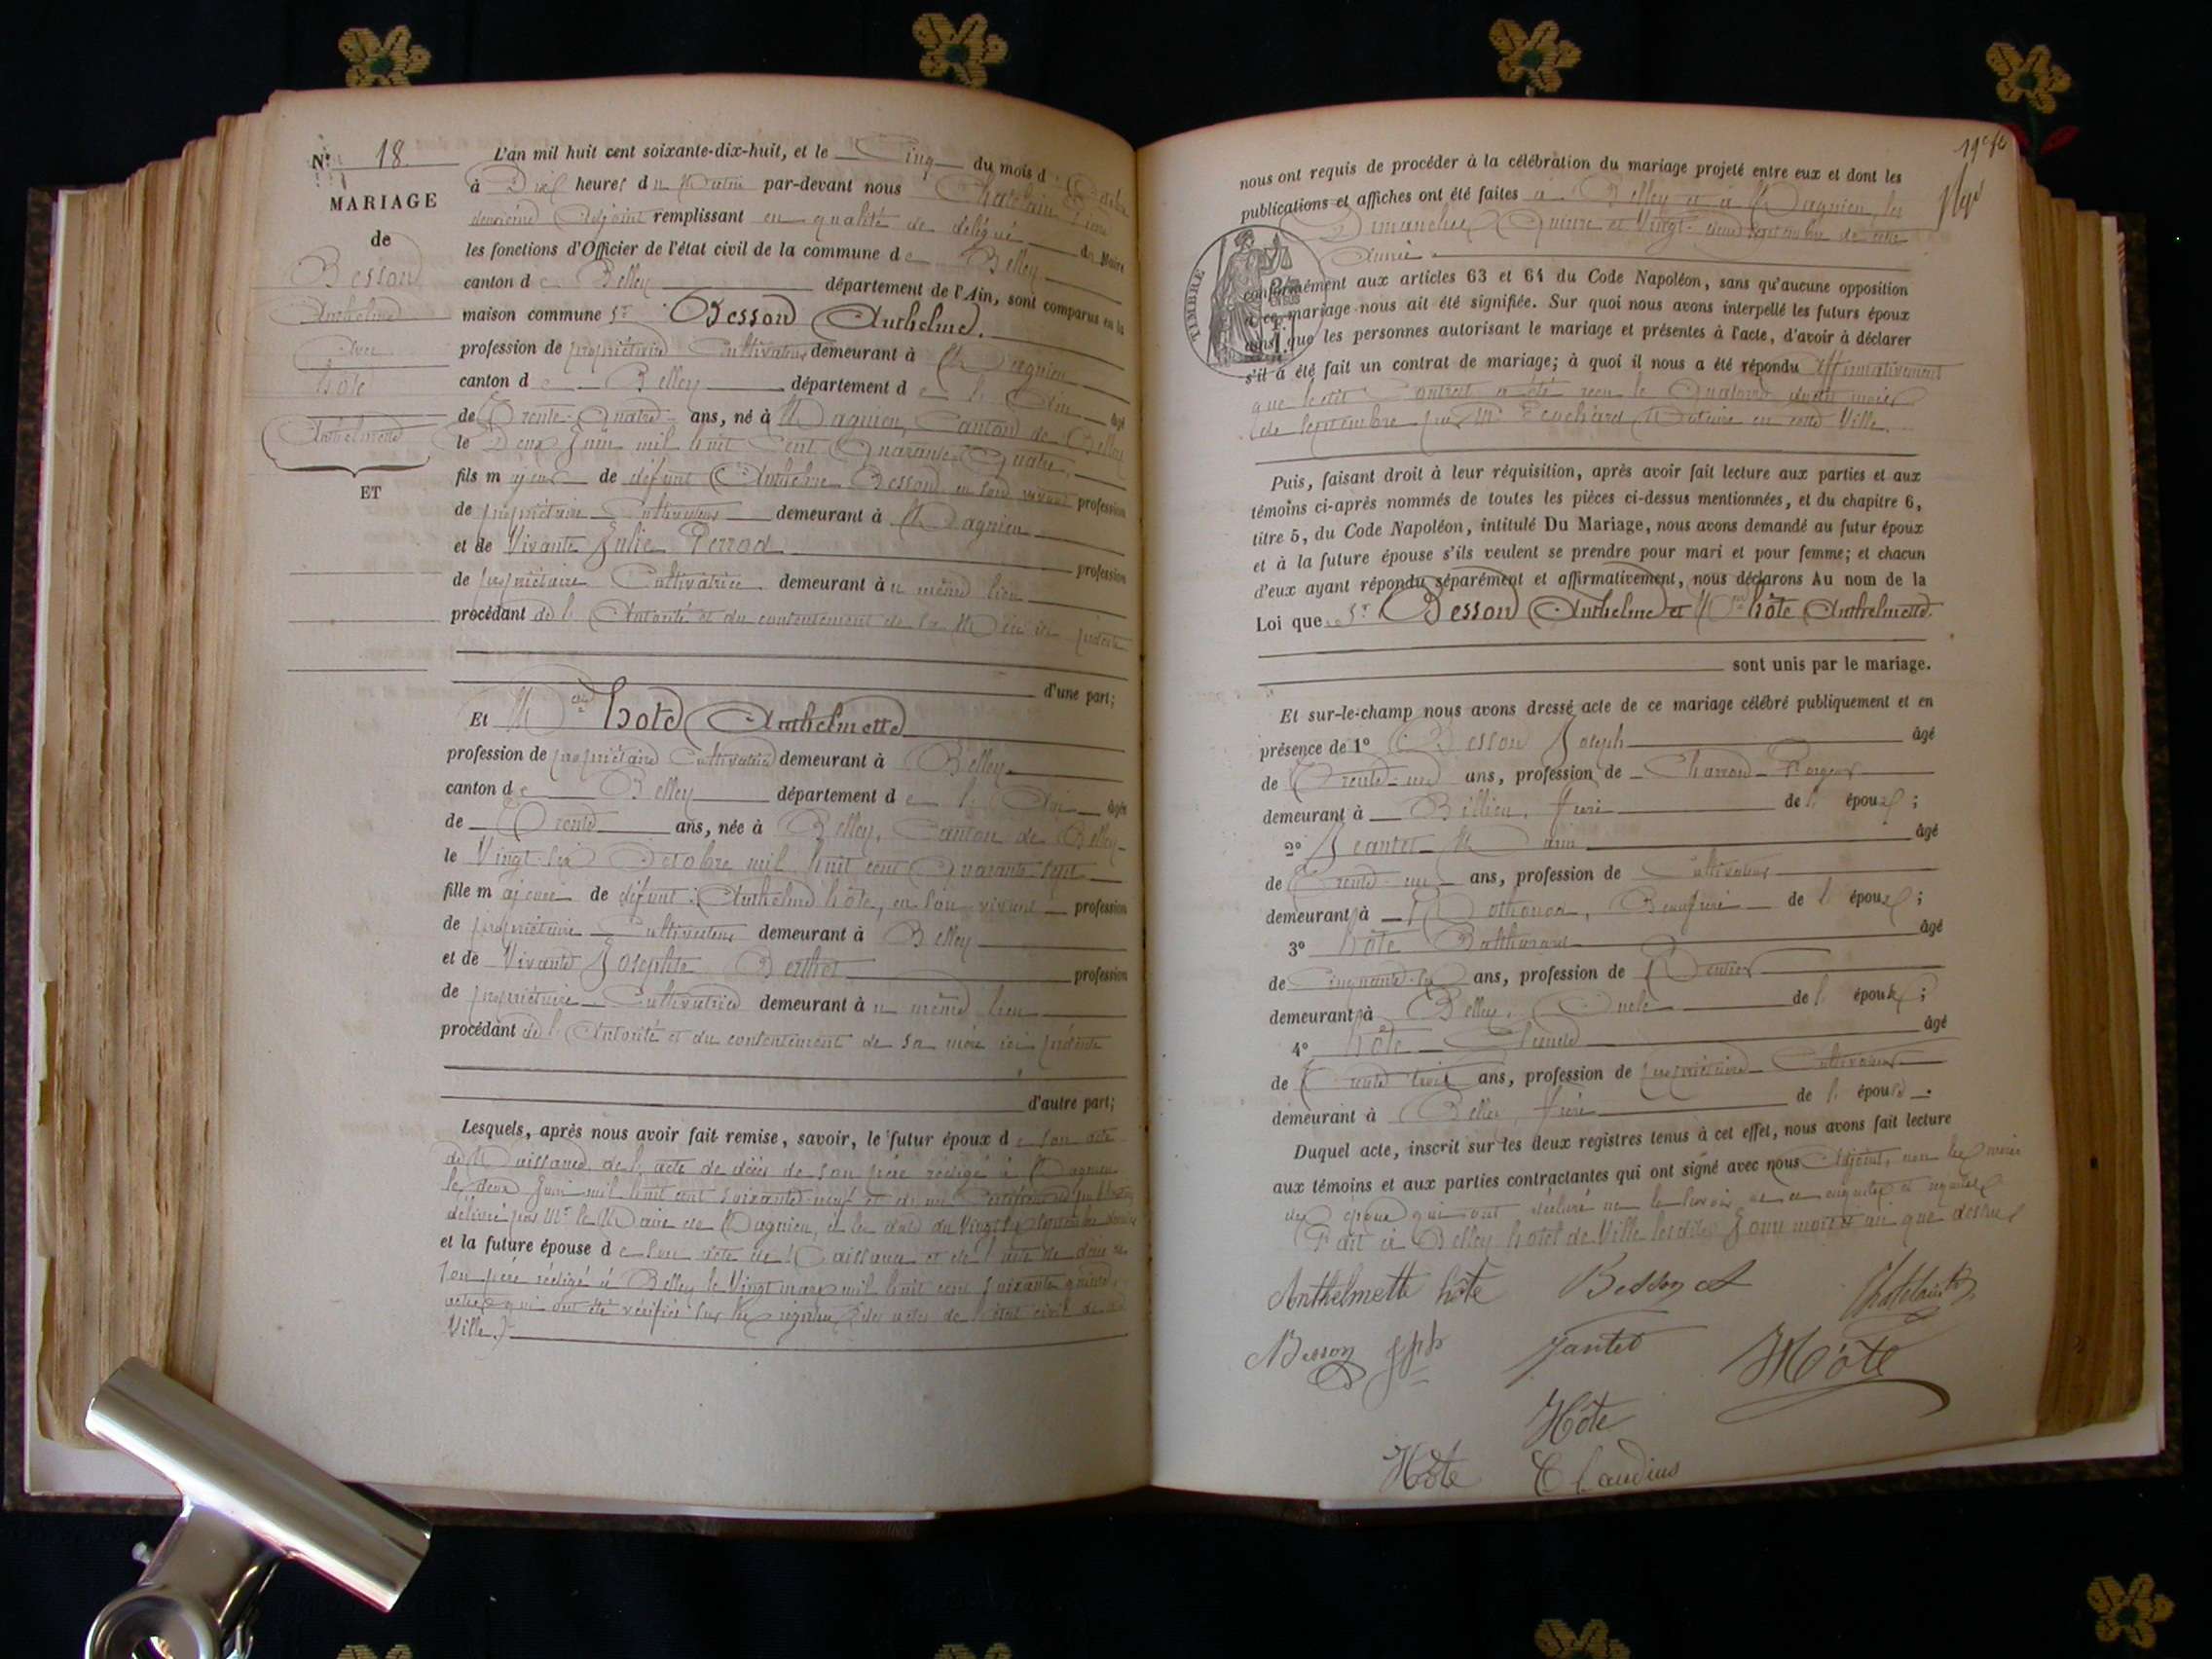 N° 18
MARIAGE
de
Besson
Anthelme
Avec
hôte
Anthelmette
ET
L'an mil huit cent soixante-dix-huit, et le Cinq du mois d'Octobre
à Dix heures du Matin par-devant nous Chatelain
deuxième Adjoint remplissant en qualité de délégué du Maire
les fonctions d'Officier de l'état civil de la commune de Belley
canton de Belley département de l'Ain, sont comparus en la
maison commune Sr Besson Anthelme.
profession de propriétaire Cultivateur demeurant à Magnieu
canton de Belley département de l'Ain âgé
de Trente-Quatre ans, né à Magnieu, Canton de Belley
le Deux Juin mil huit Cent Quarante Quatre,
fils majeur de défunt Anthelme Besson en son vivant profession
de propriétaire Cultivateur demeurant à Magnieu
et de Vivante Julie Perrod profession
de propriétaire Cultivatrice demeurant au même lieu
procédant de l'Autorité et du consentement de sa Mère ici présente
d'une part;
Et Melle hôte Anthelmette
profession de propriétaire Cultivatrice demeurant à Belley
canton de Belley département de l'Ain âgée
de Trente ans, née à Belley, Canton de Belley
le Vingt-six Octobre mil huit cent Quarante-sept
fille majeure de défunt Anthelme hôte, en son vivant profession
de propriétaire Cultivateur demeurant à Belley
et de Vivante Josephte Berthet profession
de propriétaire Cultivatrice demeurant au même lieu
procédant de l'Autorité et du consentement de sa mère ici présente
d'autre part;
Lesquels, après nous avoir fait remise, savoir, le futur époux de son acte
de Naissance, de l'acte de décès de son père rédigé à Magnieu
le deux Juin mil huit cent soixante-neuf et d'un Certificat
délivré par Mr le Maire de Magnieu, à la date du Vingt Septembre dernier
et la future épouse de son acte de Naissance et de l'acte de décès de
son père rédigé à Belley le Vingt mars mil huit cent soixante quinze,
actes qui ont été vérifiés sur les registres des actes de l'état civil de
Ville.
nous ont requis de procéder à la célébration du mariage projeté entre eux et dont les
publications et affiches ont été faites à Belley et à Magnieu, les
Dimanches Quinze et Vingt-deux septembre de cette
Année.
TIMBRE
conformément aux articles 63 et 64 du Code Napoléon, sans qu'aucune opposition
à ce mariage nous ait été signifiée. Sur quoi nous avons interpellé les futurs époux
ainsi que les personnes autorisant le mariage et présentes à l'acte, d'avoir à déclarer
s'il a été fait un contrat de mariage; à quoi il nous a été répondu Affirmativement
que ledit Contrat a été reçu le Quatorze dudit mois
de septembre par Me Notaire en cette Ville.
Puis, faisant droit à leur réquisition, après avoir fait lecture aux parties et aux
témoins ci-après nommés de toutes les pièces ci-dessus mentionnées, et du chapitre 6,
titre 5, du Code Napoléon, intitulé Du Mariage, nous avons demandé au futur époux
et à la future épouse s'ils veulent se prendre pour mari et pour femme; et chacun
d'eux ayant répondu séparément et affirmativement, nous déclarons Au nom de la
Loi que Sr Besson Anthelme et Melle hôte Anthelmette
sont unis par le mariage.
Et sur-le-champ nous avons dressé acte de ce mariage célébré publiquement et en
présence de 1° Besson Joseph âgé
de Trente-un ans, profession de Charron-Forgeur
demeurant à Billieu, frère de l'époux;
2° Jeantet âgé
de Trente-un ans, profession de Cultivateur
demeurant à Pothonod, Beaufrère de l'époux;
3° hôte Balthazard âgé
de Cinquante-six ans, profession de Rentier
demeurant à Belley, Oncle de l'épouse;
4° hôte Claude âgé
de Trente trois ans, profession de propriétaire Cultivateur
demeurant à Belley, frère de l'épouse.
Duquel acte, inscrit sur les deux registres tenus à cet effet, nous avons fait lecture
aux témoins et aux parties contractantes qui ont signé avec nous Adjoint, non les mères
des époux qui ont déclaré ne le savoir de ce enquises et requises
Fait à Belley hôtel de Ville lesdits Jour mois et an que dessus
Anthelmette hôte Besson A Chatelain
Besson Jph Jantet Hôte
Hôte
Hôte Claudius